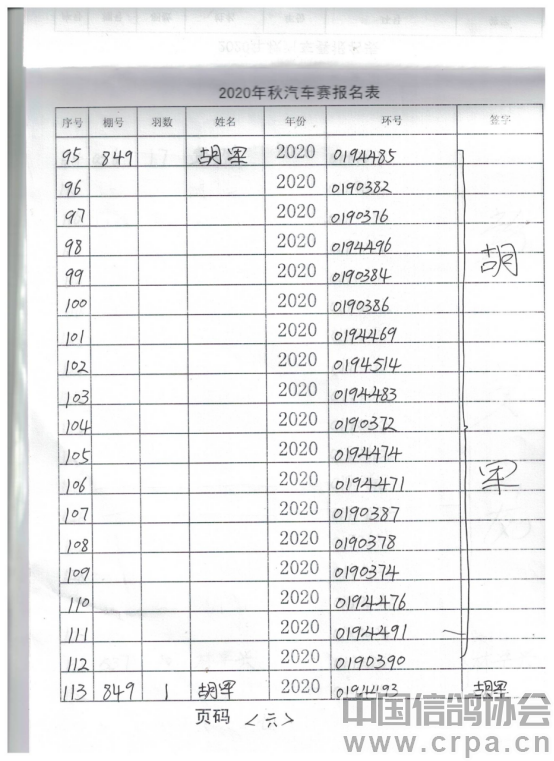 2020年秋汽车赛报名表
序号 棚号 羽数 姓名 年份 环号 签字
95 849 胡军 2020 0194485
96 2020 0190382
97 2020 0190376
98 2020 0194496
99 2020 0190384
100 2020 0190386
101 2020 0194469
102 2020 0194514
103 2020 0194483
104 2020 0190372
105 2020 0194474
106 2020 0194471
107 2020 0190387
108 2020 0190378
109 2020 0190374
110 2020 0194476
111 2020 0194491
112 2020 0190390
胡军
113 849 1 胡军 2020 0194493 胡军
页码 <六>
中国信鸽协会
www.crpa.cn